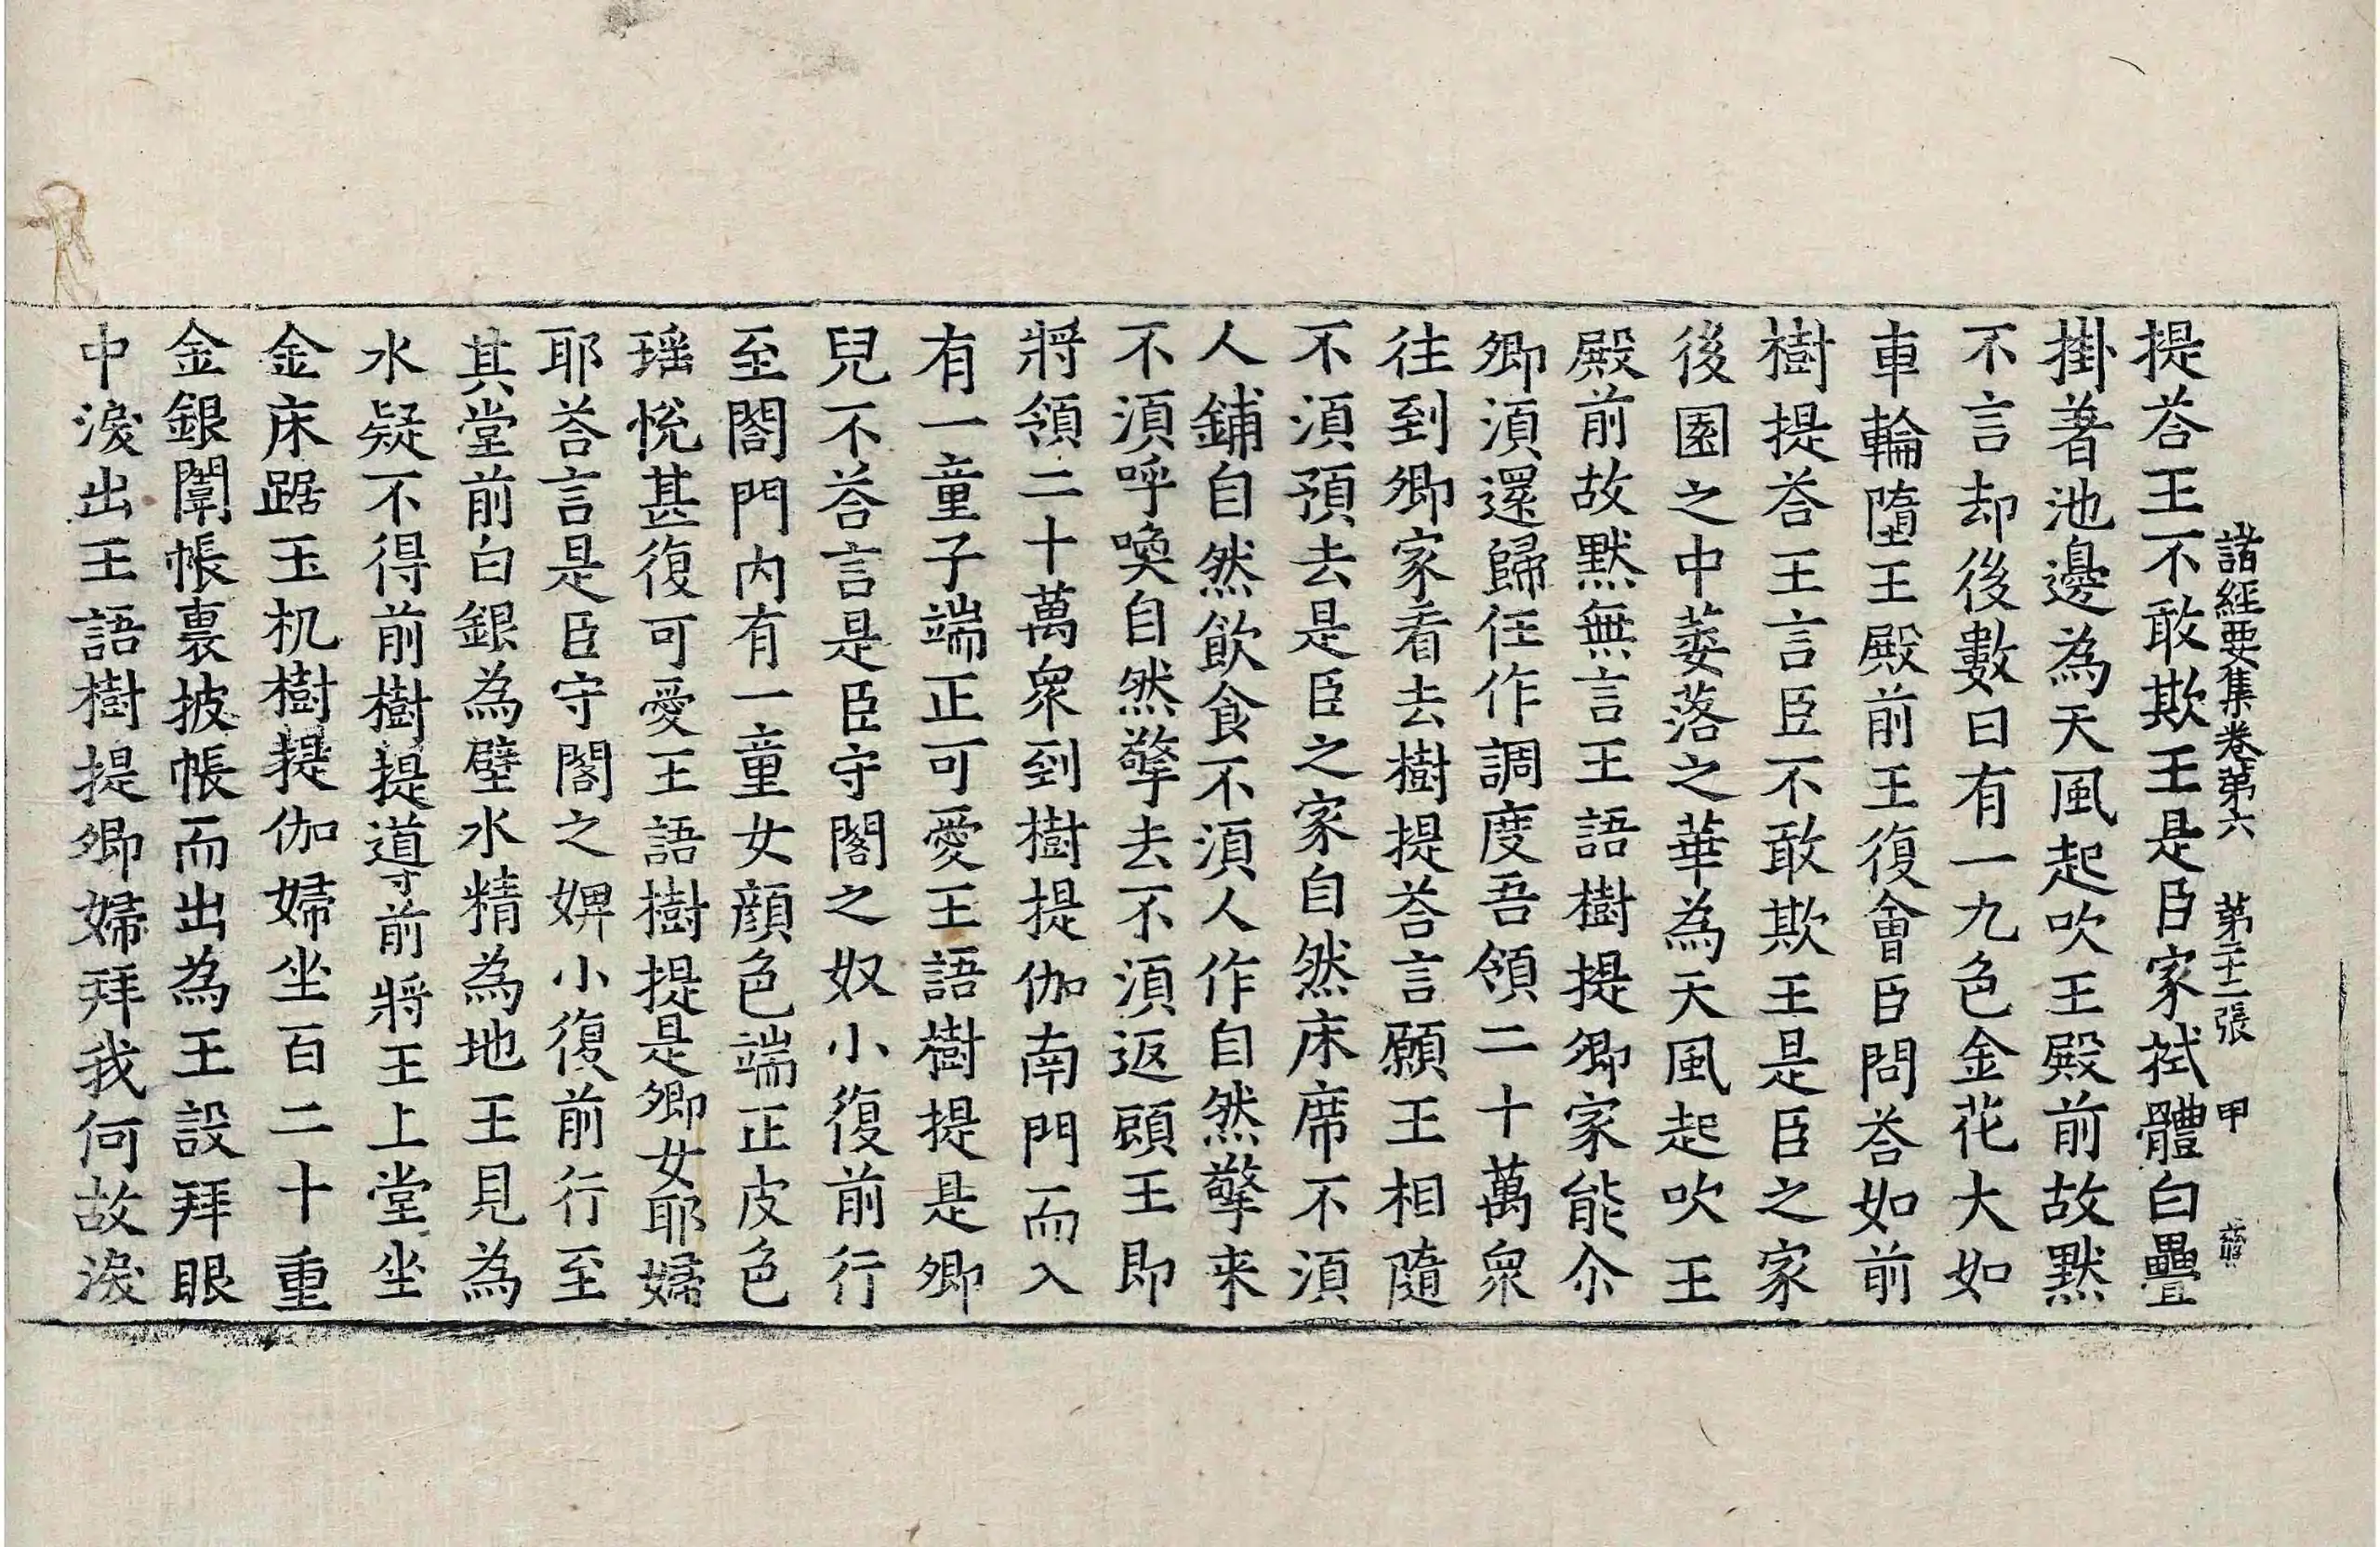 諸經要集卷第六 第二十二張 甲
提荅王不敢欺王是臣家拭體白疊
掛著池邊為天風起吹王殿前故默
不言却後數日有一九色金花大如
車輪墮王殿前王復會臣問荅如前
樹提荅王言臣不敢欺王是臣之家
後園之中萎落之華為天風起吹王
殿前故默無言王語樹提卿家能尒
卿湏還歸任作調度吾領二十萬衆
往到卿家看去樹提荅言願王相隨
不湏預去是臣之家自然床席不湏
人鋪自然飲食不湏人作自然擎来
不湏呼喚自然擎去不湏返顧王即
將領二十萬衆到樹提伽南門而入
有一童子端正可愛王語樹提是卿
兒不荅言是臣守閤之奴小復前行
至閤門內有一童女顔色端正皮色
瑶悅甚復可愛王語樹提是卿女耶婦
耶荅言是臣守閤之婢小復前行至
其堂前白銀為壁水精為地王見為
水疑不得前樹提導前將王上堂坐
金床踞玉机樹提伽婦坐百二十重
金銀闈帳裏披帳而出為王設拜眼
中淚出王語樹提卿婦拜我何故淚